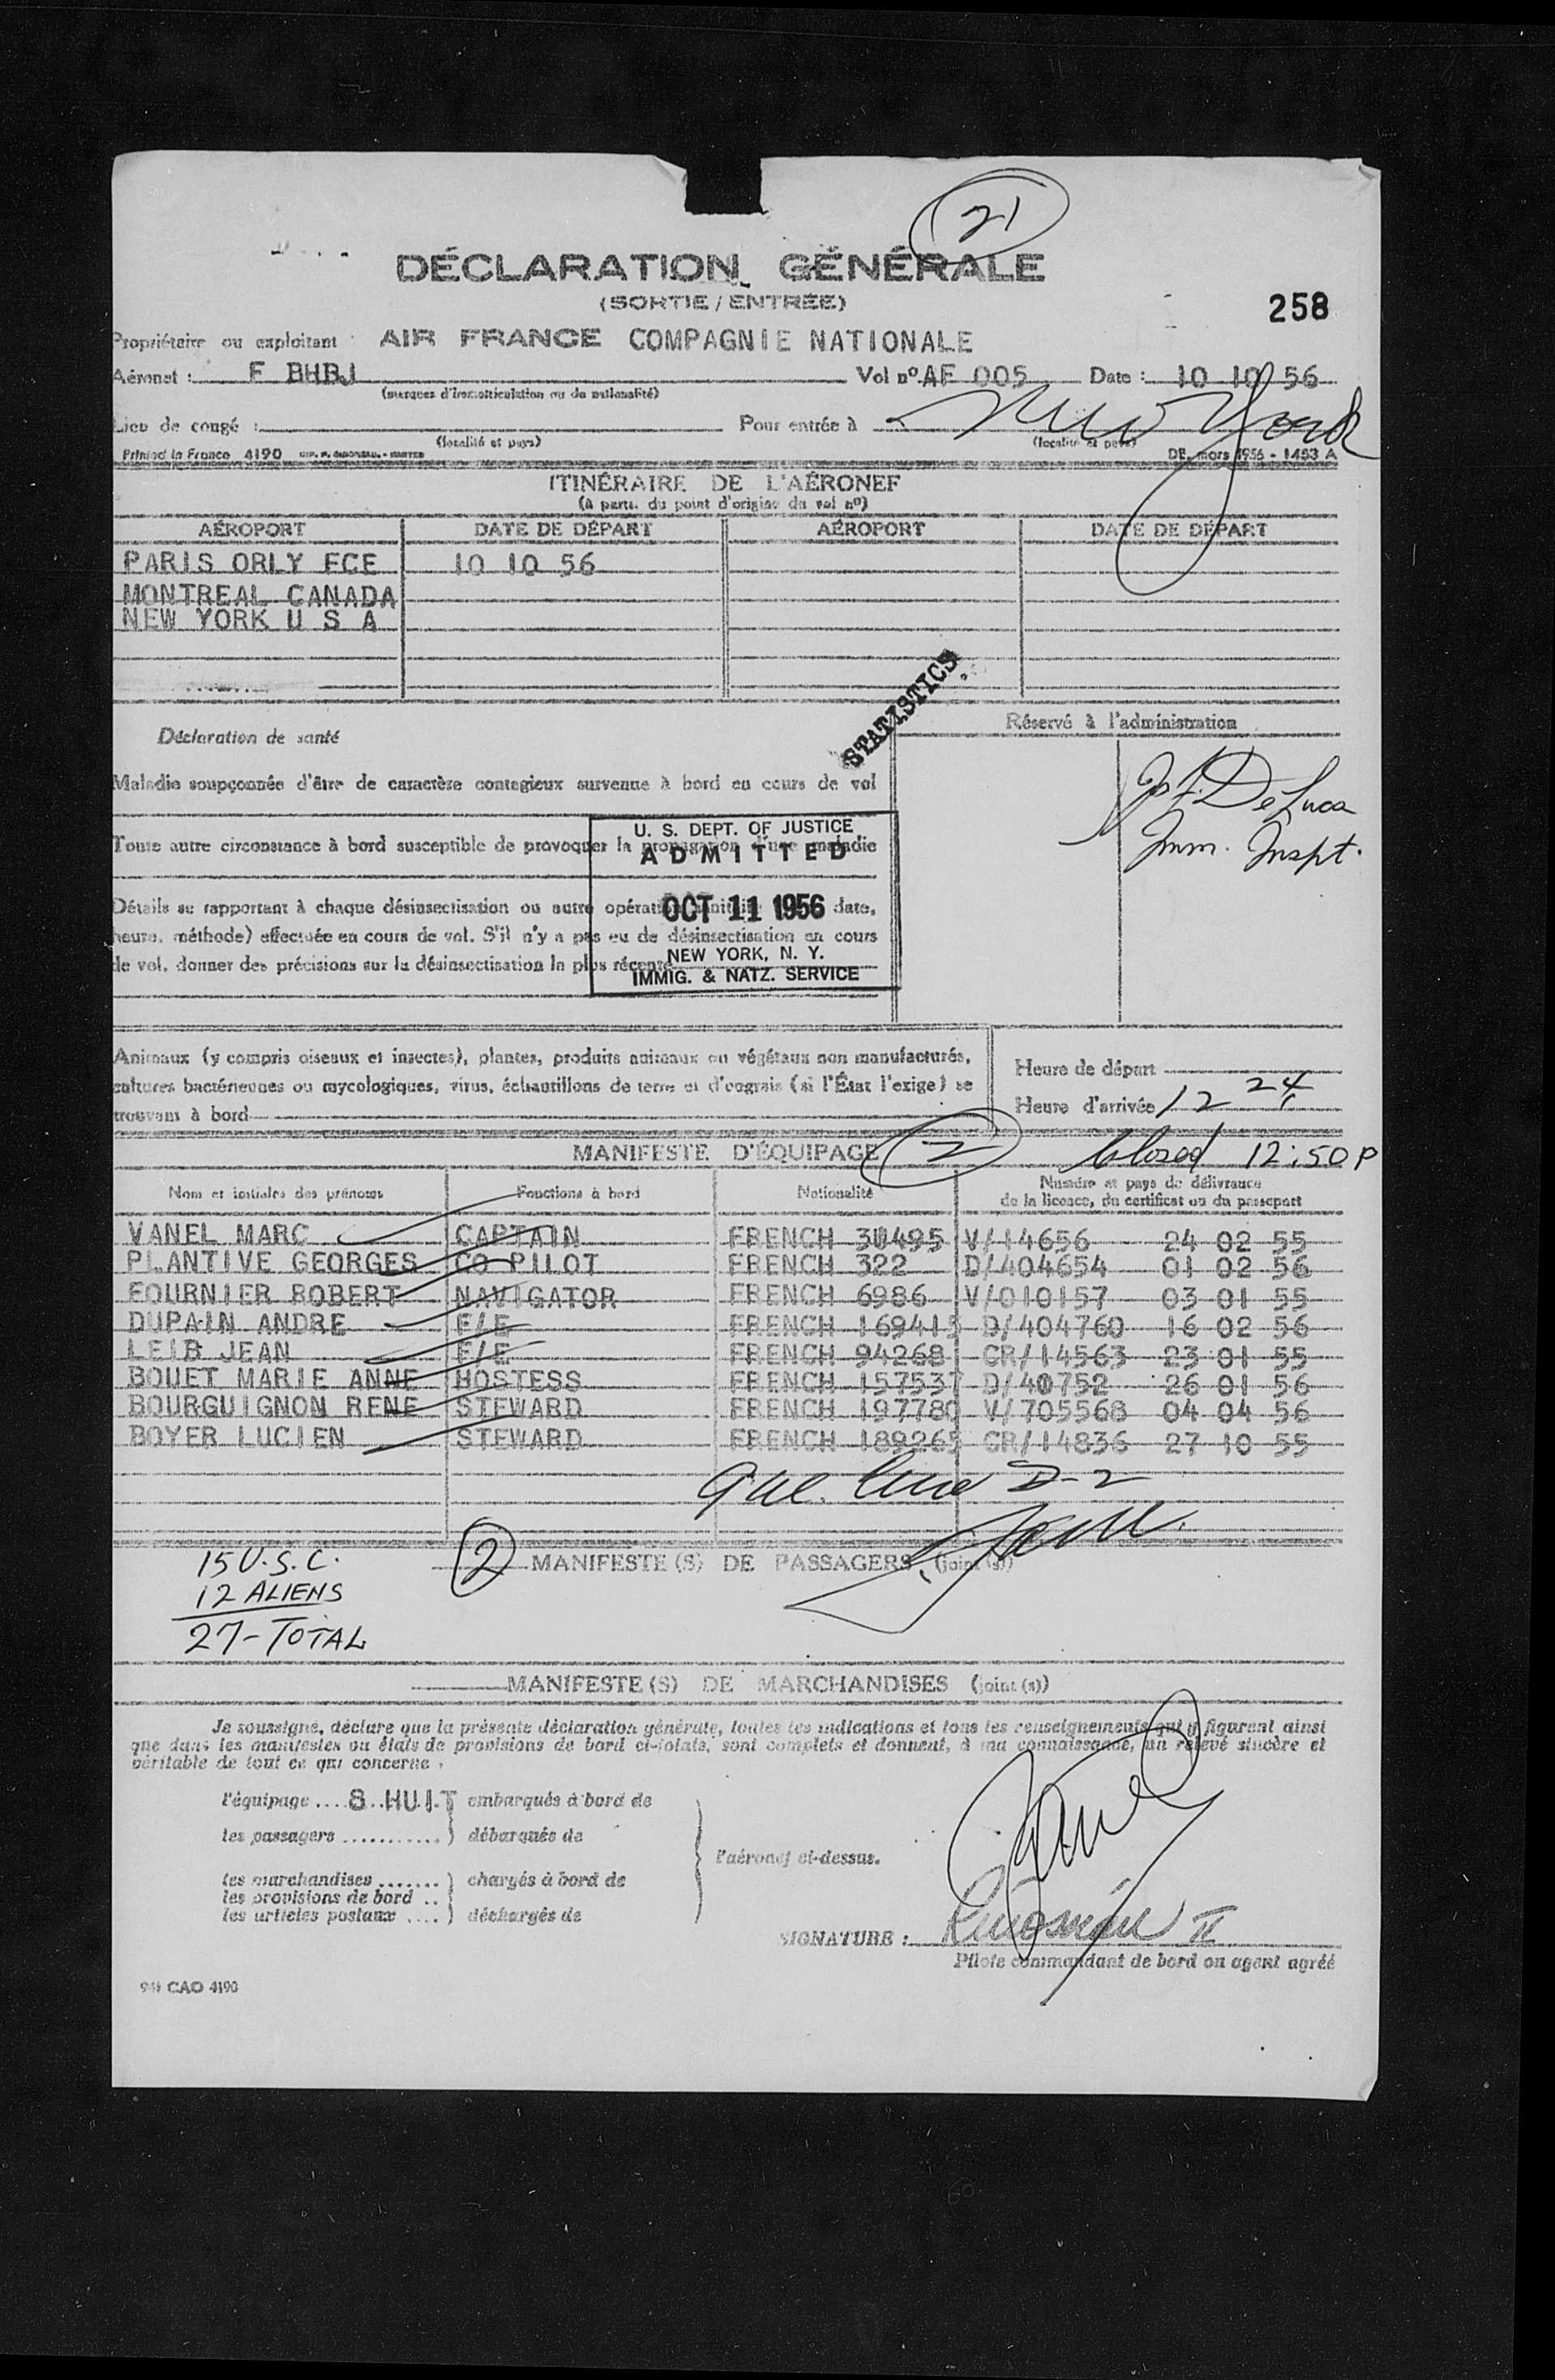 21
DÉCLARATION GÉNÉRALE
(SORTIE / ENTRÉE)
258
Propriétaire ou exploitant : AIR FRANCE COMPAGNIE NATIONALE
Aéronef : F BHBJ Vol nº AF 005 Date : 10 10 56
(marques d'immatriculation ou de nationalité)
Lieu de congé : Pour entrée à New York
(localité et pays) (localité et pays)
Printed in France 4190 DE. mars 1956 - 1453 A
ITINÉRAIRE DE L'AÉRONEF
(à partir du point d'origine du vol nº)
AÉROPORT DATE DE DÉPART AÉROPORT DATE DE DÉPART
PARIS ORLY FCE 10 10 56
MONTREAL CANADA
NEW YORK U S A
STATISTICS
Réservé à l'administration
Déclaration de santé
Jos F. DeLuca
Imm. Inspt.
Maladie soupçonnée d'être de caractère contagieux survenue à bord en cours de vol
Toute autre circonstance à bord susceptible de provoquer la propagation d'une maladie
Détails se rapportant à chaque désinsectisation ou autre opération sanitaire date,
heure, méthode) effectuée en cours de vol. S'il n'y a pas eu de désinsectisation en cours
de vol, donner des précisions sur la désinsectisation la plus récente
U. S. DEPT. OF JUSTICE
ADMITTED
OCT 11 1956
NEW YORK, N. Y.
IMMIG. & NATZ. SERVICE
Animaux (y compris oiseaux et insectes), plantes, produits animaux ou végétaux non manufacturés,
cultures bactériennes ou mycologiques, virus, échantillons de terre et d'engrais (si l'État l'exige) se
trouvant à bord
Heure de départ
Heure d'arrivée 12 24
MANIFESTE D'ÉQUIPAGE 2 Closed 12:50 P
Nom et initiales des prénoms Fonctions à bord Nationalité Numéro et pays de délivrance
de la licence, du certificat ou du passeport
VANEL MARC CAPTAIN FRENCH 30495 V/14656 24 02 55
PLANTIVE GEORGES CO PILOT FRENCH 322 D/404654 01 02 56
FOURNIER ROBERT NAVIGATOR FRENCH 6986 V/010157 03 01 55
DUPAIN ANDRE F/E FRENCH 169415 D/404760 16 02 56
LEIB JEAN F/E FRENCH 94268 CR/14563 23 01 55
BOUET MARIE ANNE HOSTESS FRENCH 157537 D/40752 26 01 56
BOURGUIGNON RENE STEWARD FRENCH 197780 V/705568 04 04 56
BOYER LUCIEN STEWARD FRENCH 189265 CR/14836 27 10 55
D-2
2 MANIFESTE(S) DE PASSAGERS (joint(s))
15 U.S.C.
12 ALIENS
27-TOTAL
MANIFESTE(S) DE MARCHANDISES (joint(s))
Je soussigné, déclare que la présente déclaration générale, toutes les indications et tous les renseignements qui y figurent ainsi
que dans les manifestes ou états de provisions de bord ci-joints, sont complets et donnent, à ma connaissance, un relevé sincère et
véritable de tout ce qui concerne :
l'équipage .... 8 HUIT embarqués à bord de
les passagers ........... ) débarqués de
l'aéronef ci-dessus.
les marchandises ....... ) chargés à bord de
les provisions de bord ..
les articles postaux .... ) déchargés de
SIGNATURE :
Pilote commandant de bord ou agent agréé
CAO 4190